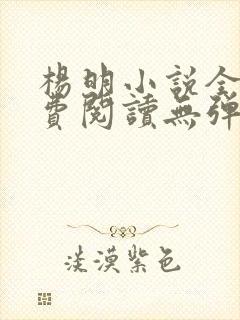 楊明小說全
費閱讀無彈
淡漠紫色